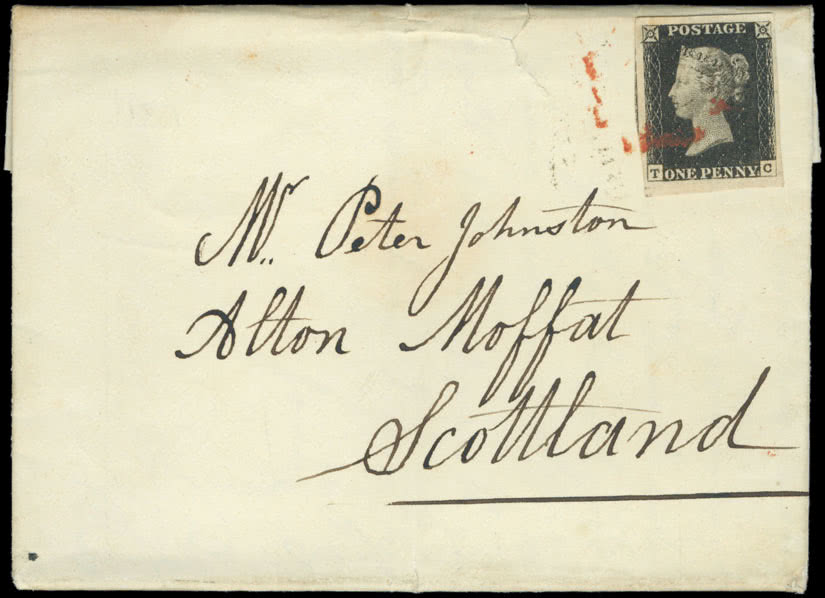 POSTAGE
T ONE PENNY C
Mr. Peter Johnston
Alton Moffat
Scottland